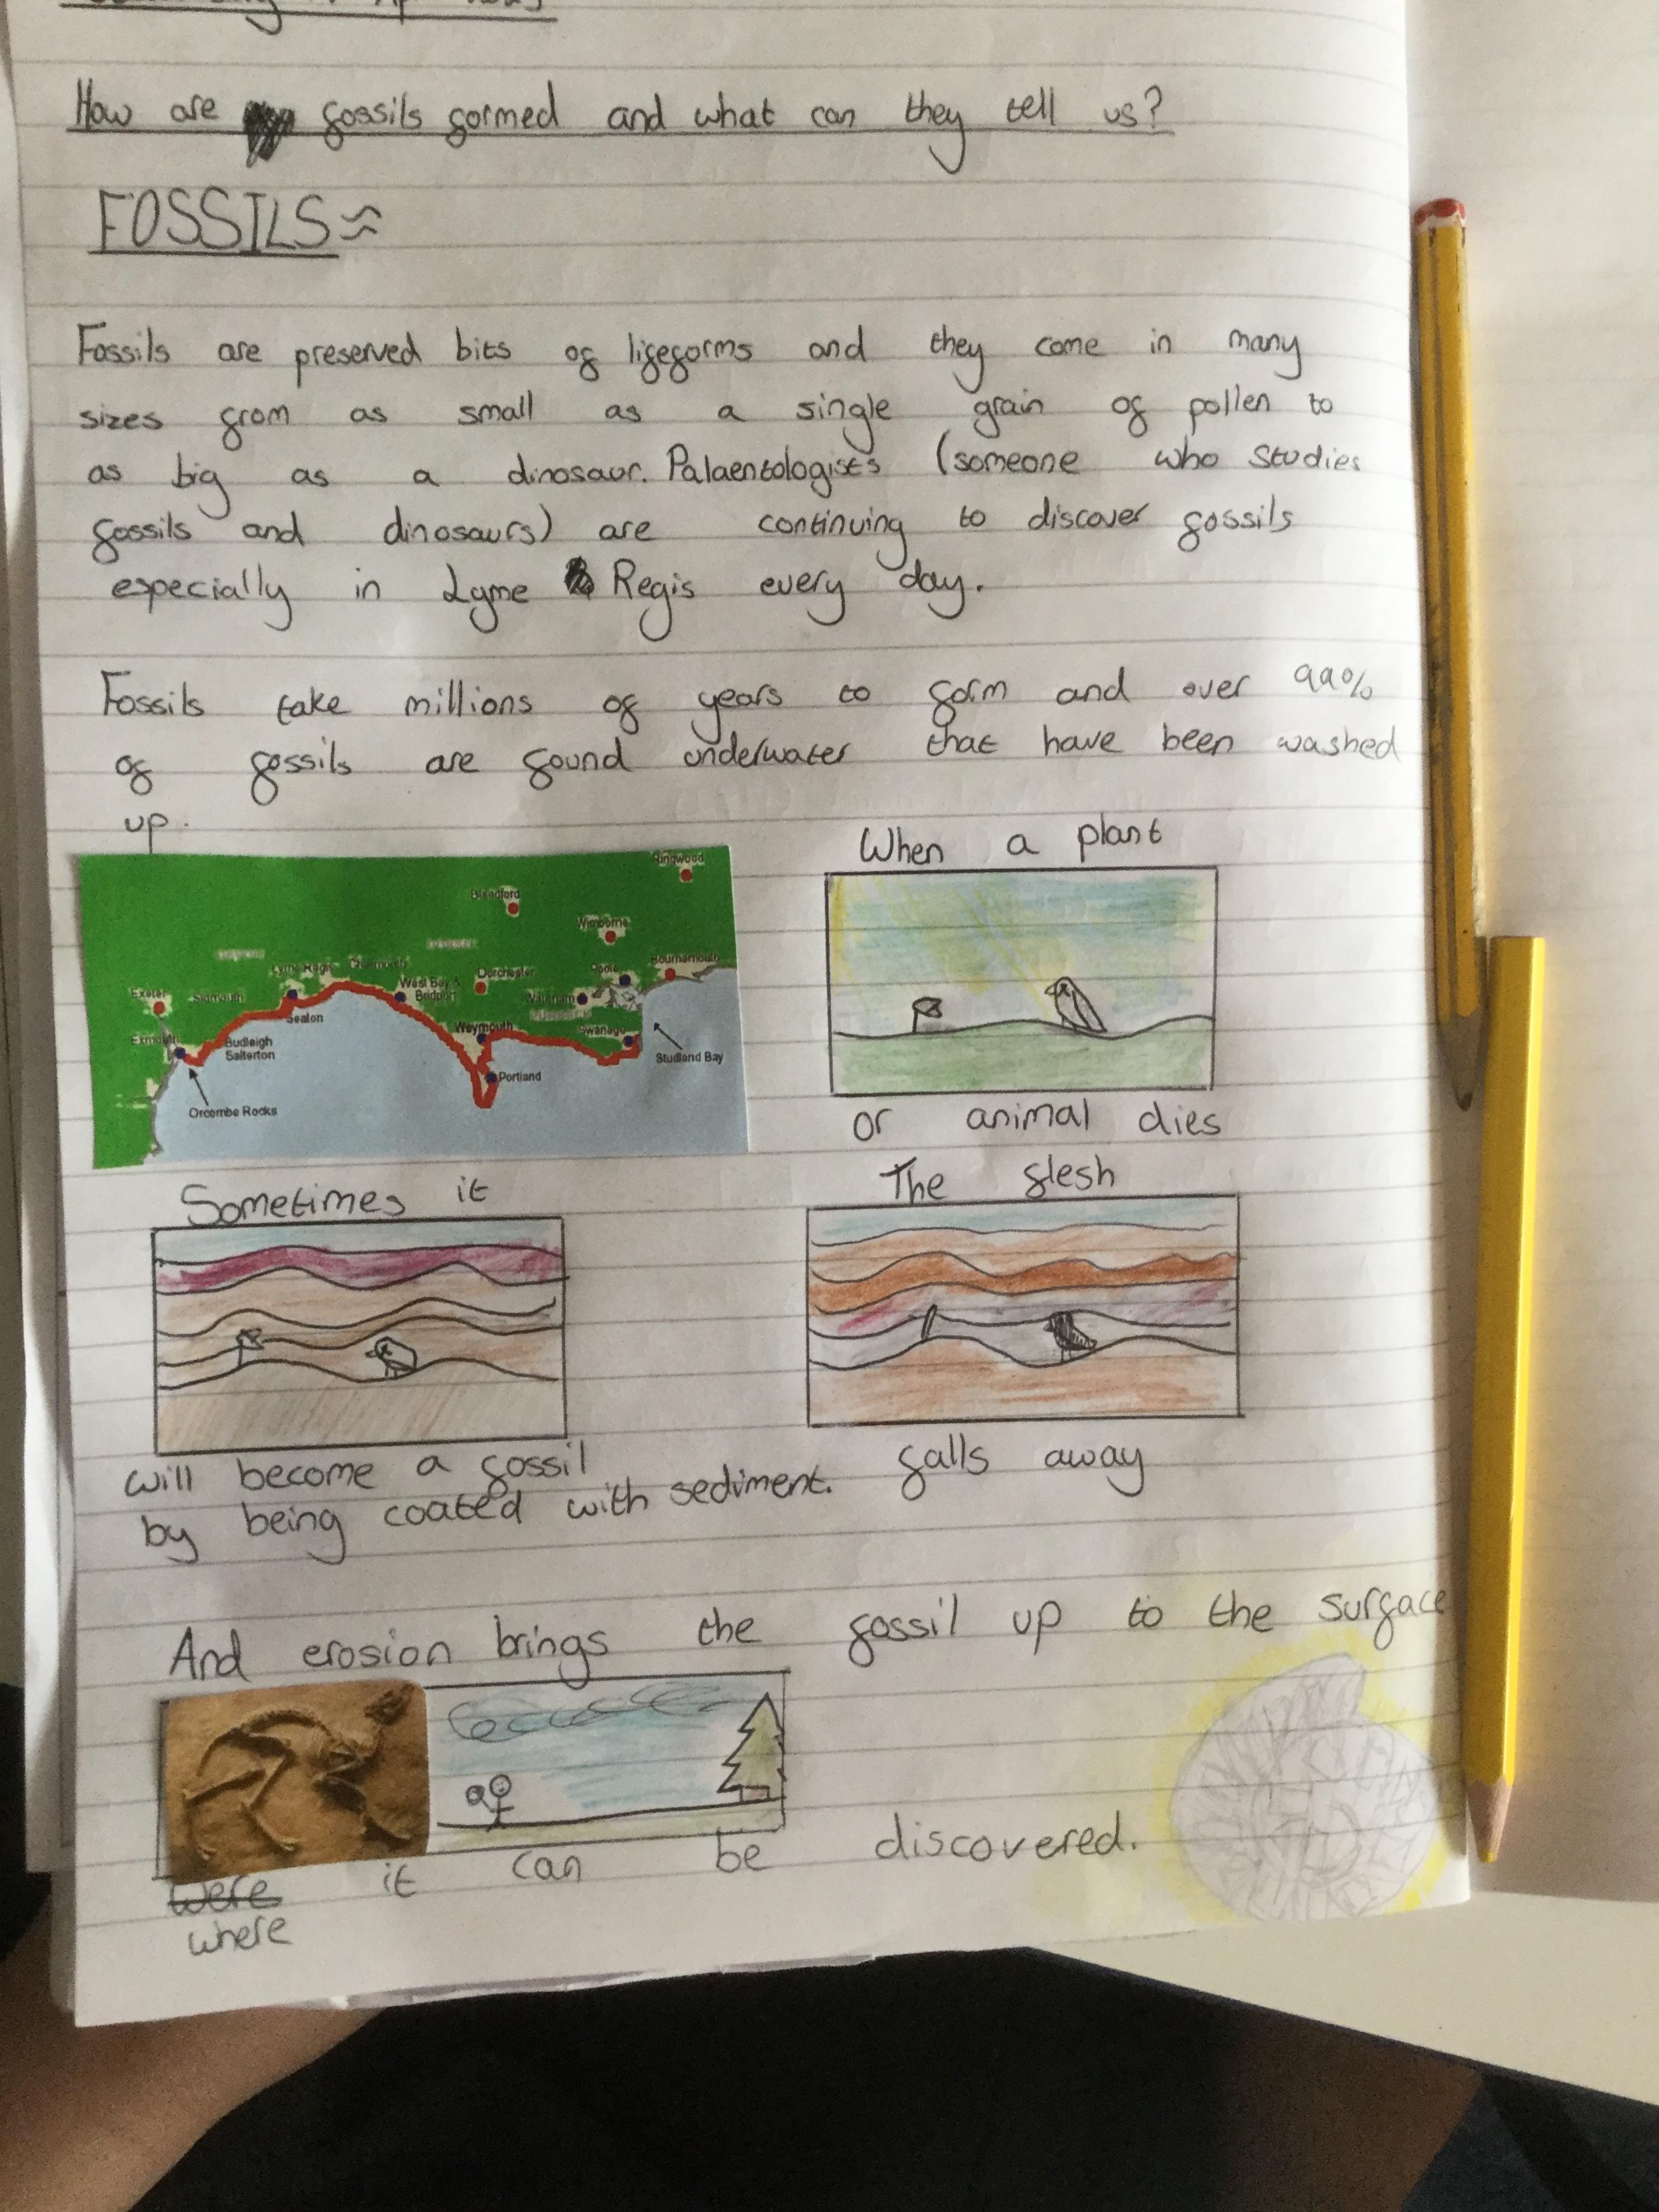 How are fossils formed and what can they tell us?
FOSSILS
Fossils are preserved bits of lifeforms and they come in many
sizes from as small as a single grain of pollen to
as big as a dinosaur. Palaentologists (someone who studies
fossils and dinosaurs) are continuing to discover fossils
especially in Lyme Regis every day.
Fossils take millions of years to form and over 99%
of fossils are found underwater that have been washed
up.
Ringwood
Blandford
Wimborne
Lyme Regis
Charmouth
West Bay &
Bridport
Dorchester
Poole
Bournemouth
Wareham
PURBECK
Exeter
Sidmouth
Seaton
Exmouth
Budleigh
Salterton
Weymouth
Swanage
Studland Bay
Portland
Orcombe Rocks
When a plant
or animal dies
Sometimes it
will become a fossil
by being coated with sediment.
The flesh
falls away
And erosion brings the fossil up to the surface
were it can be discovered.
where